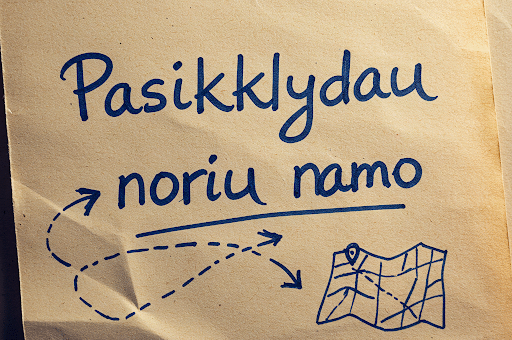 Pasikklydau
noriu namo